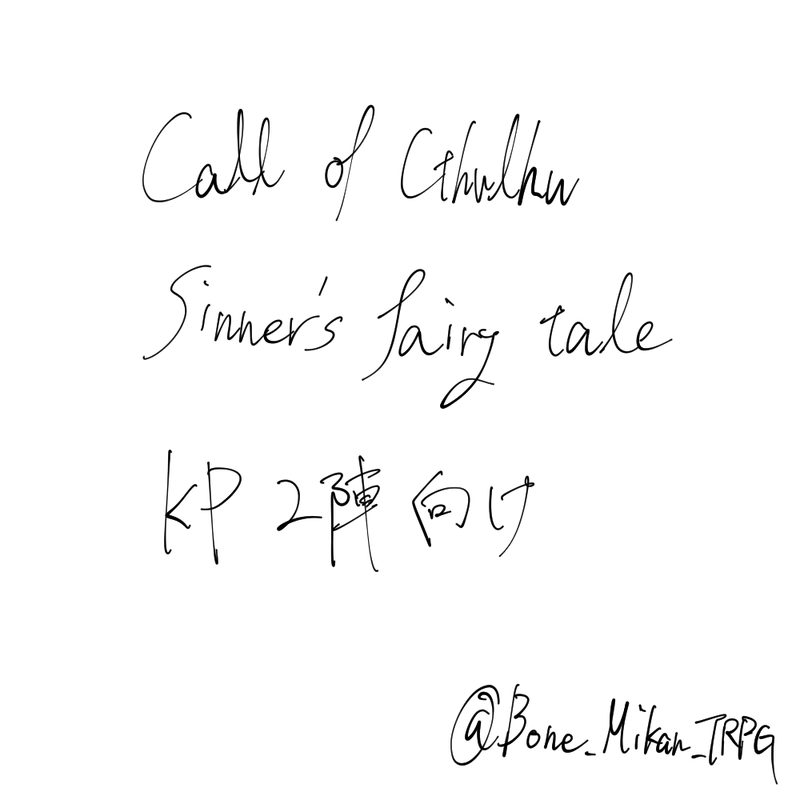 Call of Cthulhu
Sinner's fairy tale
KP 2陣向け
@Bone_Mikan_TRPG